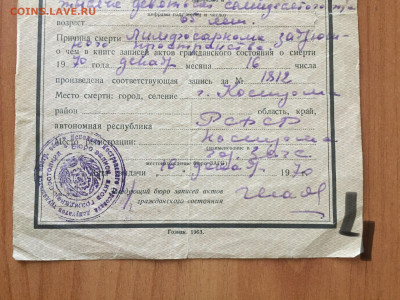 COINS.LAVE.RU
цифрами год, месяц и число
тысяча девятьсот семидесятого года
возраст 65 лет.
Причина смерти Лимфосаркома забрюшинного
пространства.
о чем в книге записей актов гражданского состояния о смерти
1970 года декабря месяца 16 числа
произведена соответствующая запись за № 1812
Место смерти: город, селение г. Кострома
район область, край,
автономная республика РСФСР
Место регистрации: Кострома
гор. загс
16 декабря 1970
бюро записей актов
гражданского состояния
Гознак. 1963.